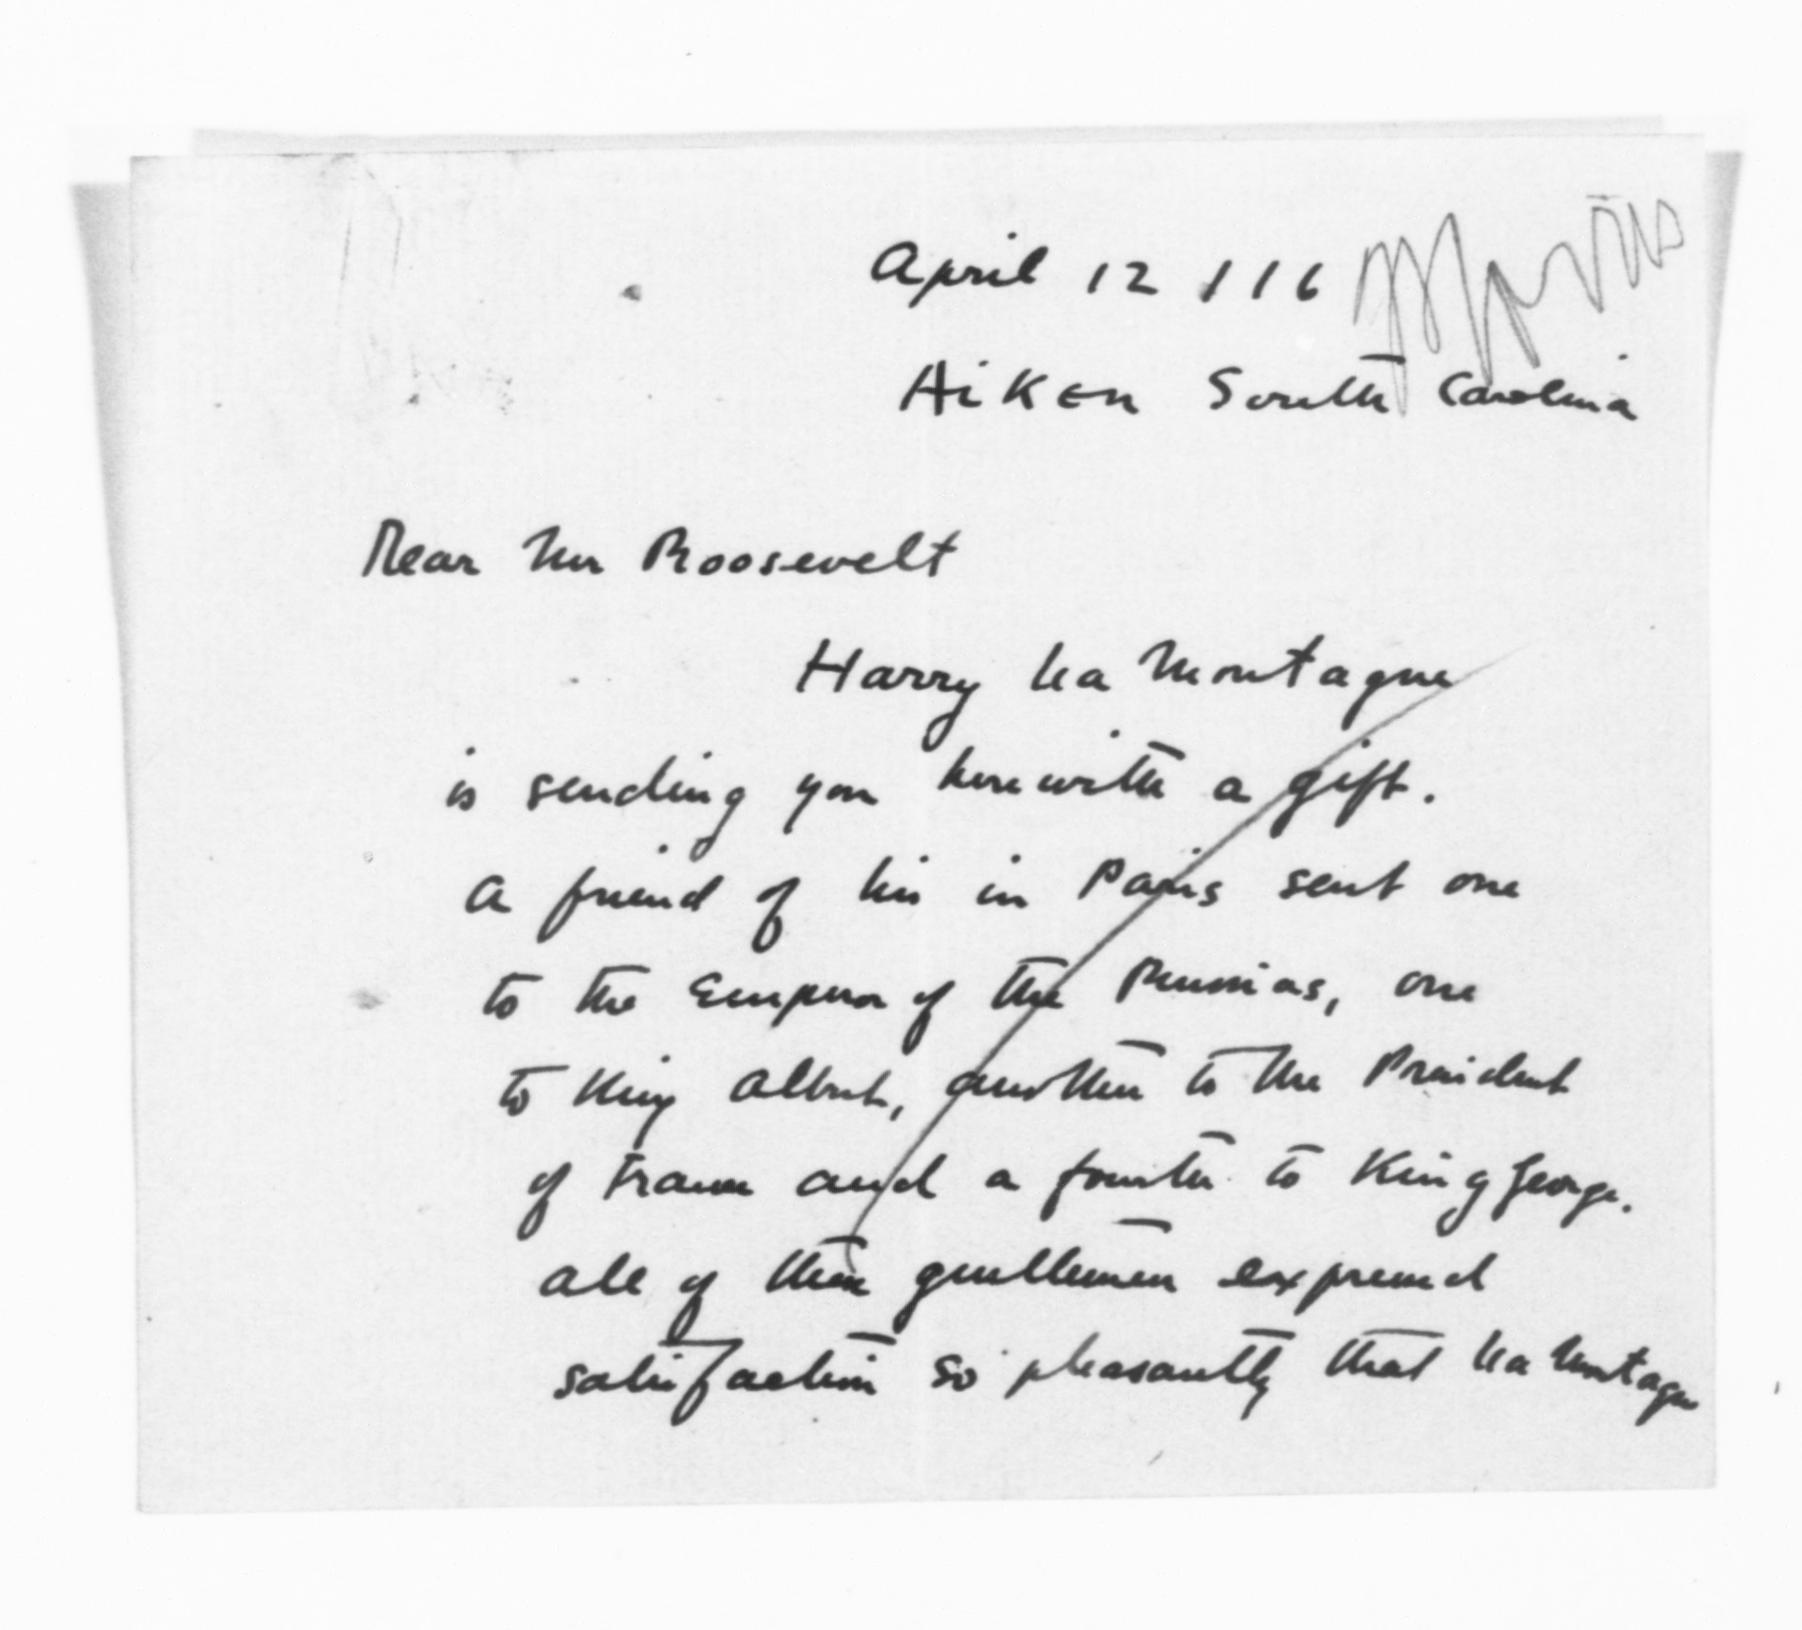 April 12 / 16
Aiken South Carolina
Dear Mr Roosevelt
Harry La Montagne
is sending you herewith a gift.
A friend of his in Paris sent one
to the Emperor of the Russias, one
to King Albert, another to the President
of France and a fourth to King George.
All of these gentlemen expressed
satisfaction so pleasantly that La Montagne